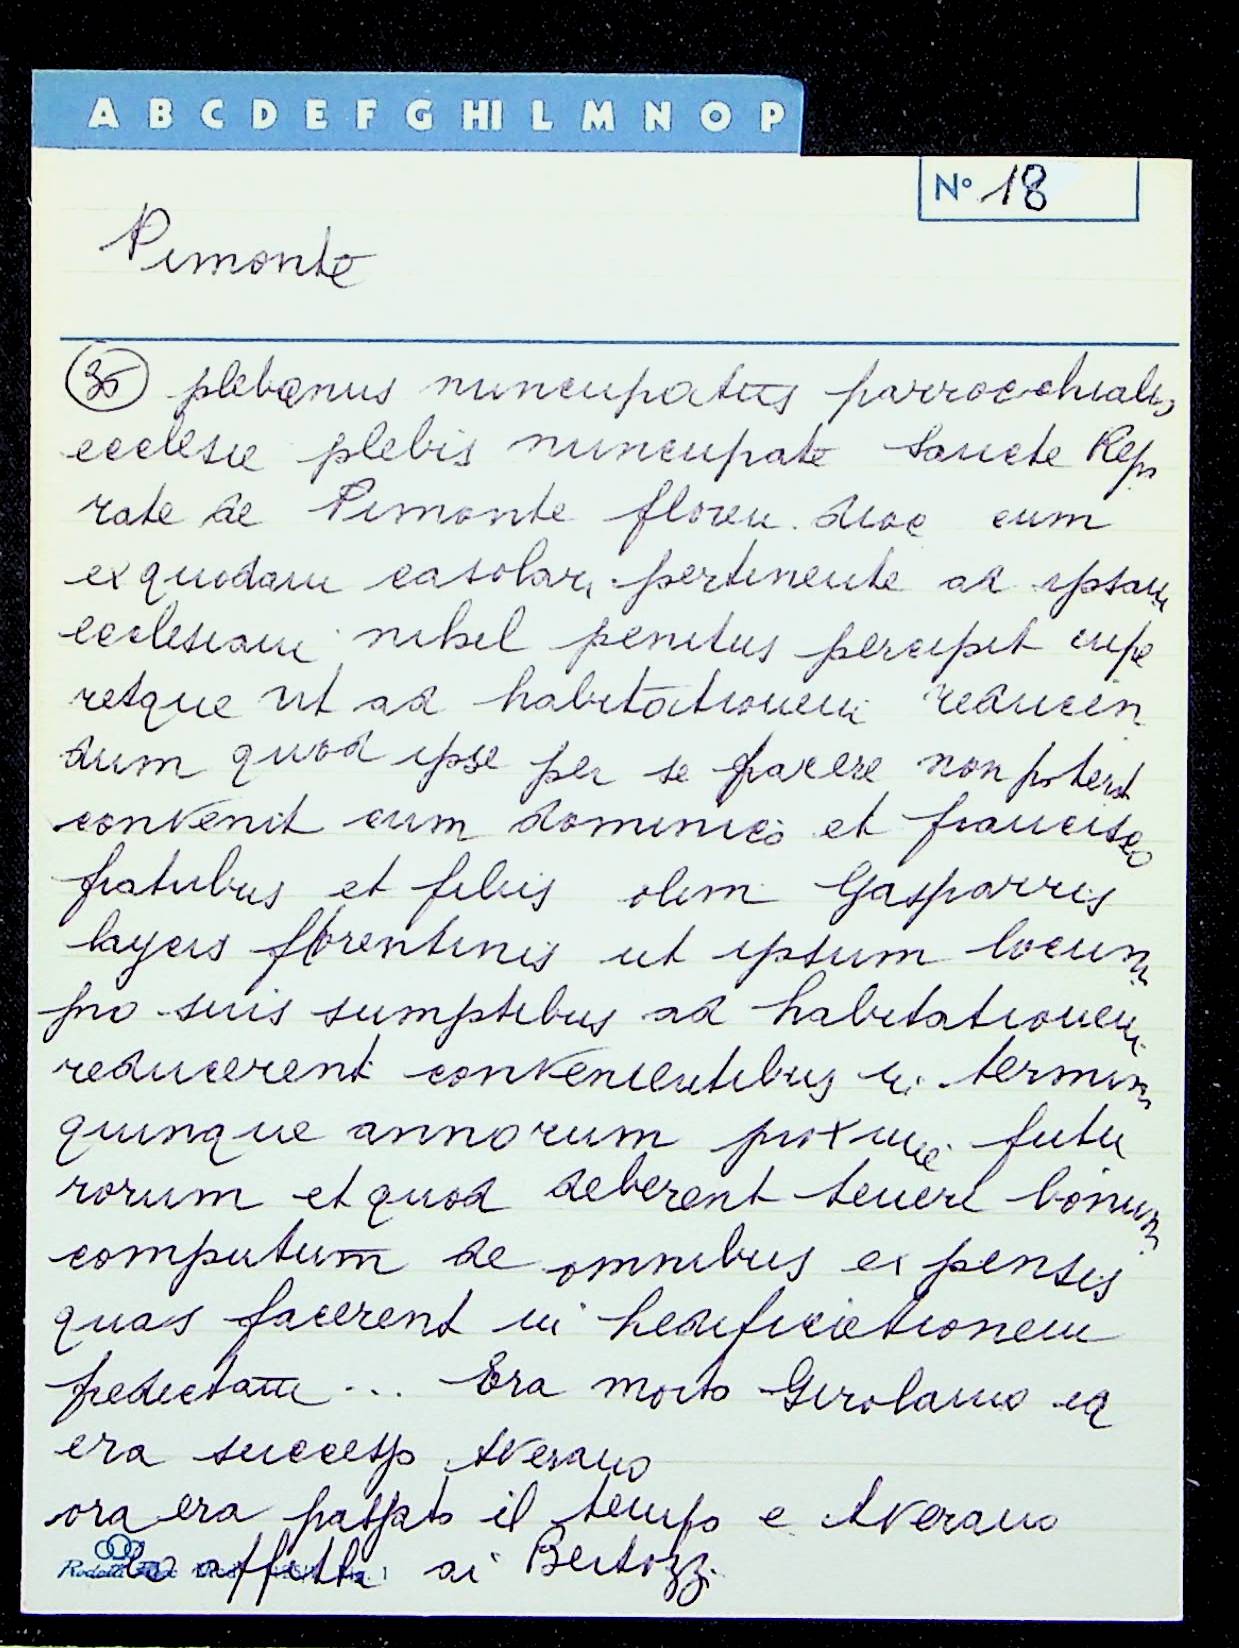 A B C D E F G HI L M N O P
N° 18
Pimonte
35 plebanus nuncupatus parrocchialis
ecclesie plebis nuncupate Sancte Repa
rate de Pimonte floren. dioc cum
ex quodam casolari pertinente ad ipsam
ecclesiam nihil penitus percipit cupe
retque ut ad habitationem reducen
dum quod ipse per se facere non poterat
convenit cum dominico et francisco
fratribus et filiis olim Gasparris
laycis florentinis ut ipsum locum
pro suis sumptibus ad habitationem
reducerent convenientibus in termino
quinque annorum proxime futu
rorum et quod deberent tenere bonum
computum de omnibus expensis
quas facerent in hedificationem
predictam ... Era morto Girolamo ed
era successo Averano
ora era passato il tempo e Averano
lo affitta ai Bertozzi